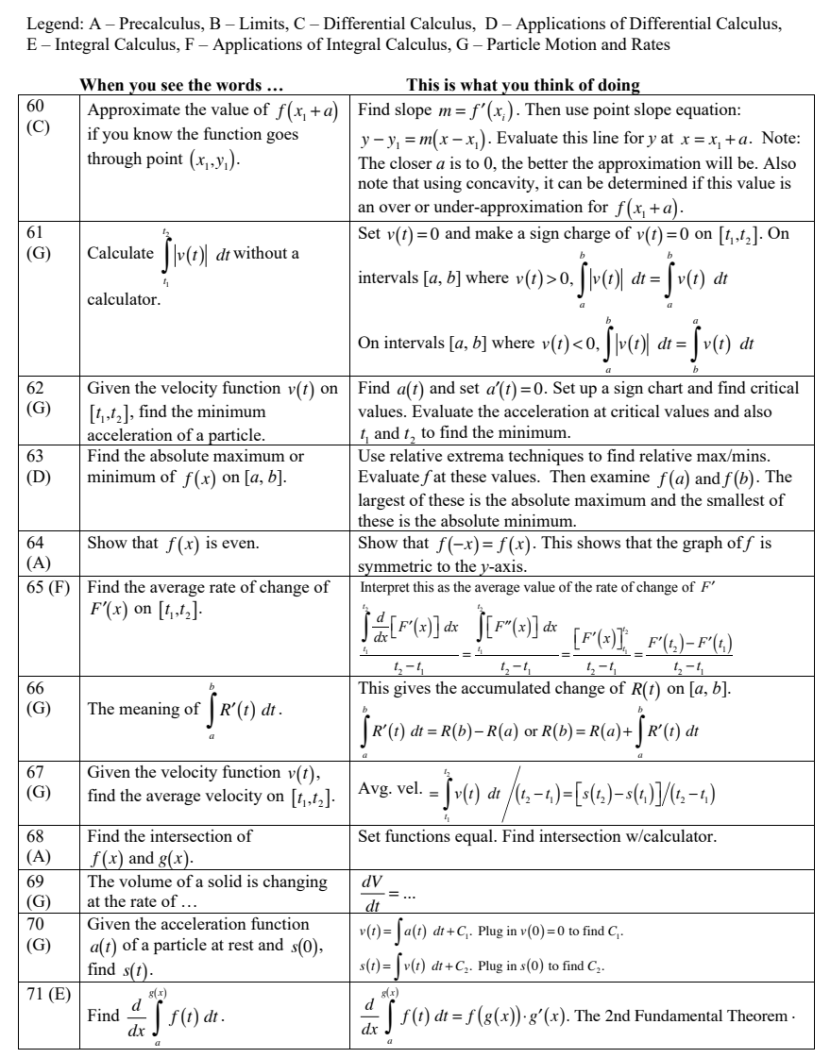 Legend: A – Precalculus, B – Limits, C – Differential Calculus,  D – Applications of Differential Calculus,
E – Integral Calculus, F – Applications of Integral Calculus, G – Particle Motion and Rates
When you see the words …
This is what you think of doing
60
(C)
Approximate the value of f(x₁ + a)
if you know the function goes
through point (x₁, y₁).
Find slope m = f′(xᵢ). Then use point slope equation:
y − y₁ = m(x − x₁). Evaluate this line for y at x = x₁ + a.  Note:
The closer a is to 0, the better the approximation will be. Also
note that using concavity, it can be determined if this value is
an over or under-approximation for f(x₁ + a).
61
(G)
Calculate ∫_{t₁}^{t₂} |v(t)| dt without a
calculator.
Set v(t) = 0 and make a sign charge of v(t) = 0 on [t₁, t₂]. On
intervals [a, b] where v(t) > 0, ∫_a^b |v(t)| dt = ∫_a^b v(t) dt
On intervals [a, b] where v(t) < 0, ∫_a^b |v(t)| dt = ∫_b^a v(t) dt
62
(G)
Given the velocity function v(t) on
[t₁, t₂], find the minimum
acceleration of a particle.
Find a(t) and set a′(t) = 0. Set up a sign chart and find critical
values. Evaluate the acceleration at critical values and also
t₁ and t₂ to find the minimum.
63
(D)
Find the absolute maximum or
minimum of f(x) on [a, b].
Use relative extrema techniques to find relative max/mins.
Evaluate f at these values.  Then examine f(a) and f(b). The
largest of these is the absolute maximum and the smallest of
these is the absolute minimum.
64
(A)
Show that f(x) is even.
Show that f(−x) = f(x). This shows that the graph of f is
symmetric to the y-axis.
65 (F)
Find the average rate of change of
F′(x) on [t₁, t₂].
Interpret this as the average value of the rate of change of F′
(∫_{t₁}^{t₂} d/dx [F′(x)] dx)/(t₂ − t₁) = (∫_{t₁}^{t₂} [F″(x)] dx)/(t₂ − t₁) = [F′(x)]_{t₁}^{t₂}/(t₂ − t₁) = (F′(t₂) − F′(t₁))/(t₂ − t₁)
66
(G)
The meaning of ∫_a^b R′(t) dt.
This gives the accumulated change of R(t) on [a, b].
∫_a^b R′(t) dt = R(b) − R(a) or R(b) = R(a) + ∫_a^b R′(t) dt
67
(G)
Given the velocity function v(t),
find the average velocity on [t₁, t₂].
Avg. vel. = ∫_{t₁}^{t₂} v(t) dt / (t₂ − t₁) = [s(t₂) − s(t₁)]/(t₂ − t₁)
68
(A)
Find the intersection of
f(x) and g(x).
Set functions equal. Find intersection w/calculator.
69
(G)
The volume of a solid is changing
at the rate of …
dV/dt = ...
70
(G)
Given the acceleration function
a(t) of a particle at rest and s(0),
find s(t).
v(t) = ∫ a(t) dt + C₁. Plug in v(0) = 0 to find C₁.
s(t) = ∫ v(t) dt + C₂. Plug in s(0) to find C₂.
71 (E)
Find d/dx ∫_a^{g(x)} f(t) dt.
d/dx ∫_a^{g(x)} f(t) dt = f(g(x)) · g′(x). The 2nd Fundamental Theorem .